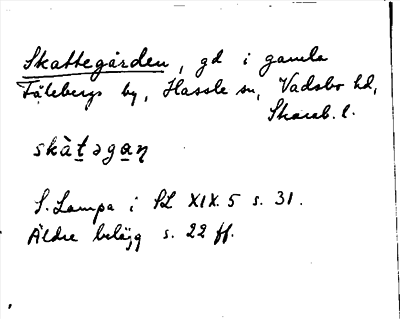 Skattegården, gd i gamla
Fäleberg by, Hassle sn, Vadsbo hd,
Skarab. l.
skàt̲əga̲ṇ
S. Lampa i SL XIX.5 s. 31.
Äldre belägg s. 22 ff.